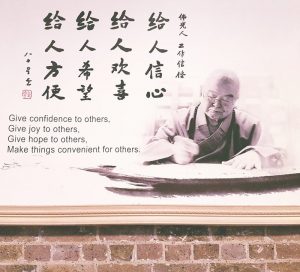 佛光人工作信條
给人信心
给人欢喜
给人希望
给人方便
Give confidence to others,
Give joy to others,
Give hope to others,
Make things convenient for others.